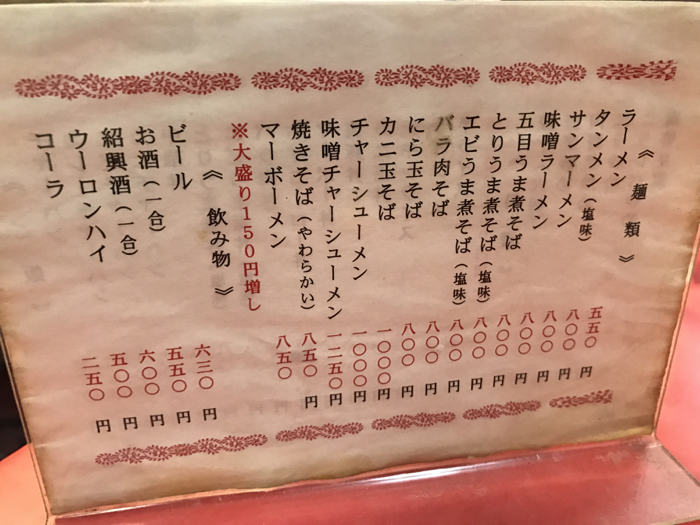 《 麺 類 》
ラーメン 五五〇円
タンメン(塩味) 八〇〇円
サンマーメン 八〇〇円
味噌ラーメン 八〇〇円
五目うま煮そば 八〇〇円
とりうま煮そば(塩味) 八〇〇円
エビうま煮そば(塩味) 八〇〇円
バラ肉そば 八〇〇円
にら玉そば 八〇〇円
カニ玉そば 一〇〇〇円
チャーシューメン 一〇〇〇円
味噌チャーシューメン 一二五〇円
焼きそば(やわらかい) 八五〇円
マーボーメン 八五〇
※大盛り150円増し
《 飲み物 》
ビール 六三〇円
お酒(一合) 五五〇円
紹興酒(一合) 六〇〇円
ウーロンハイ 五〇〇円
コーラ 二五〇円